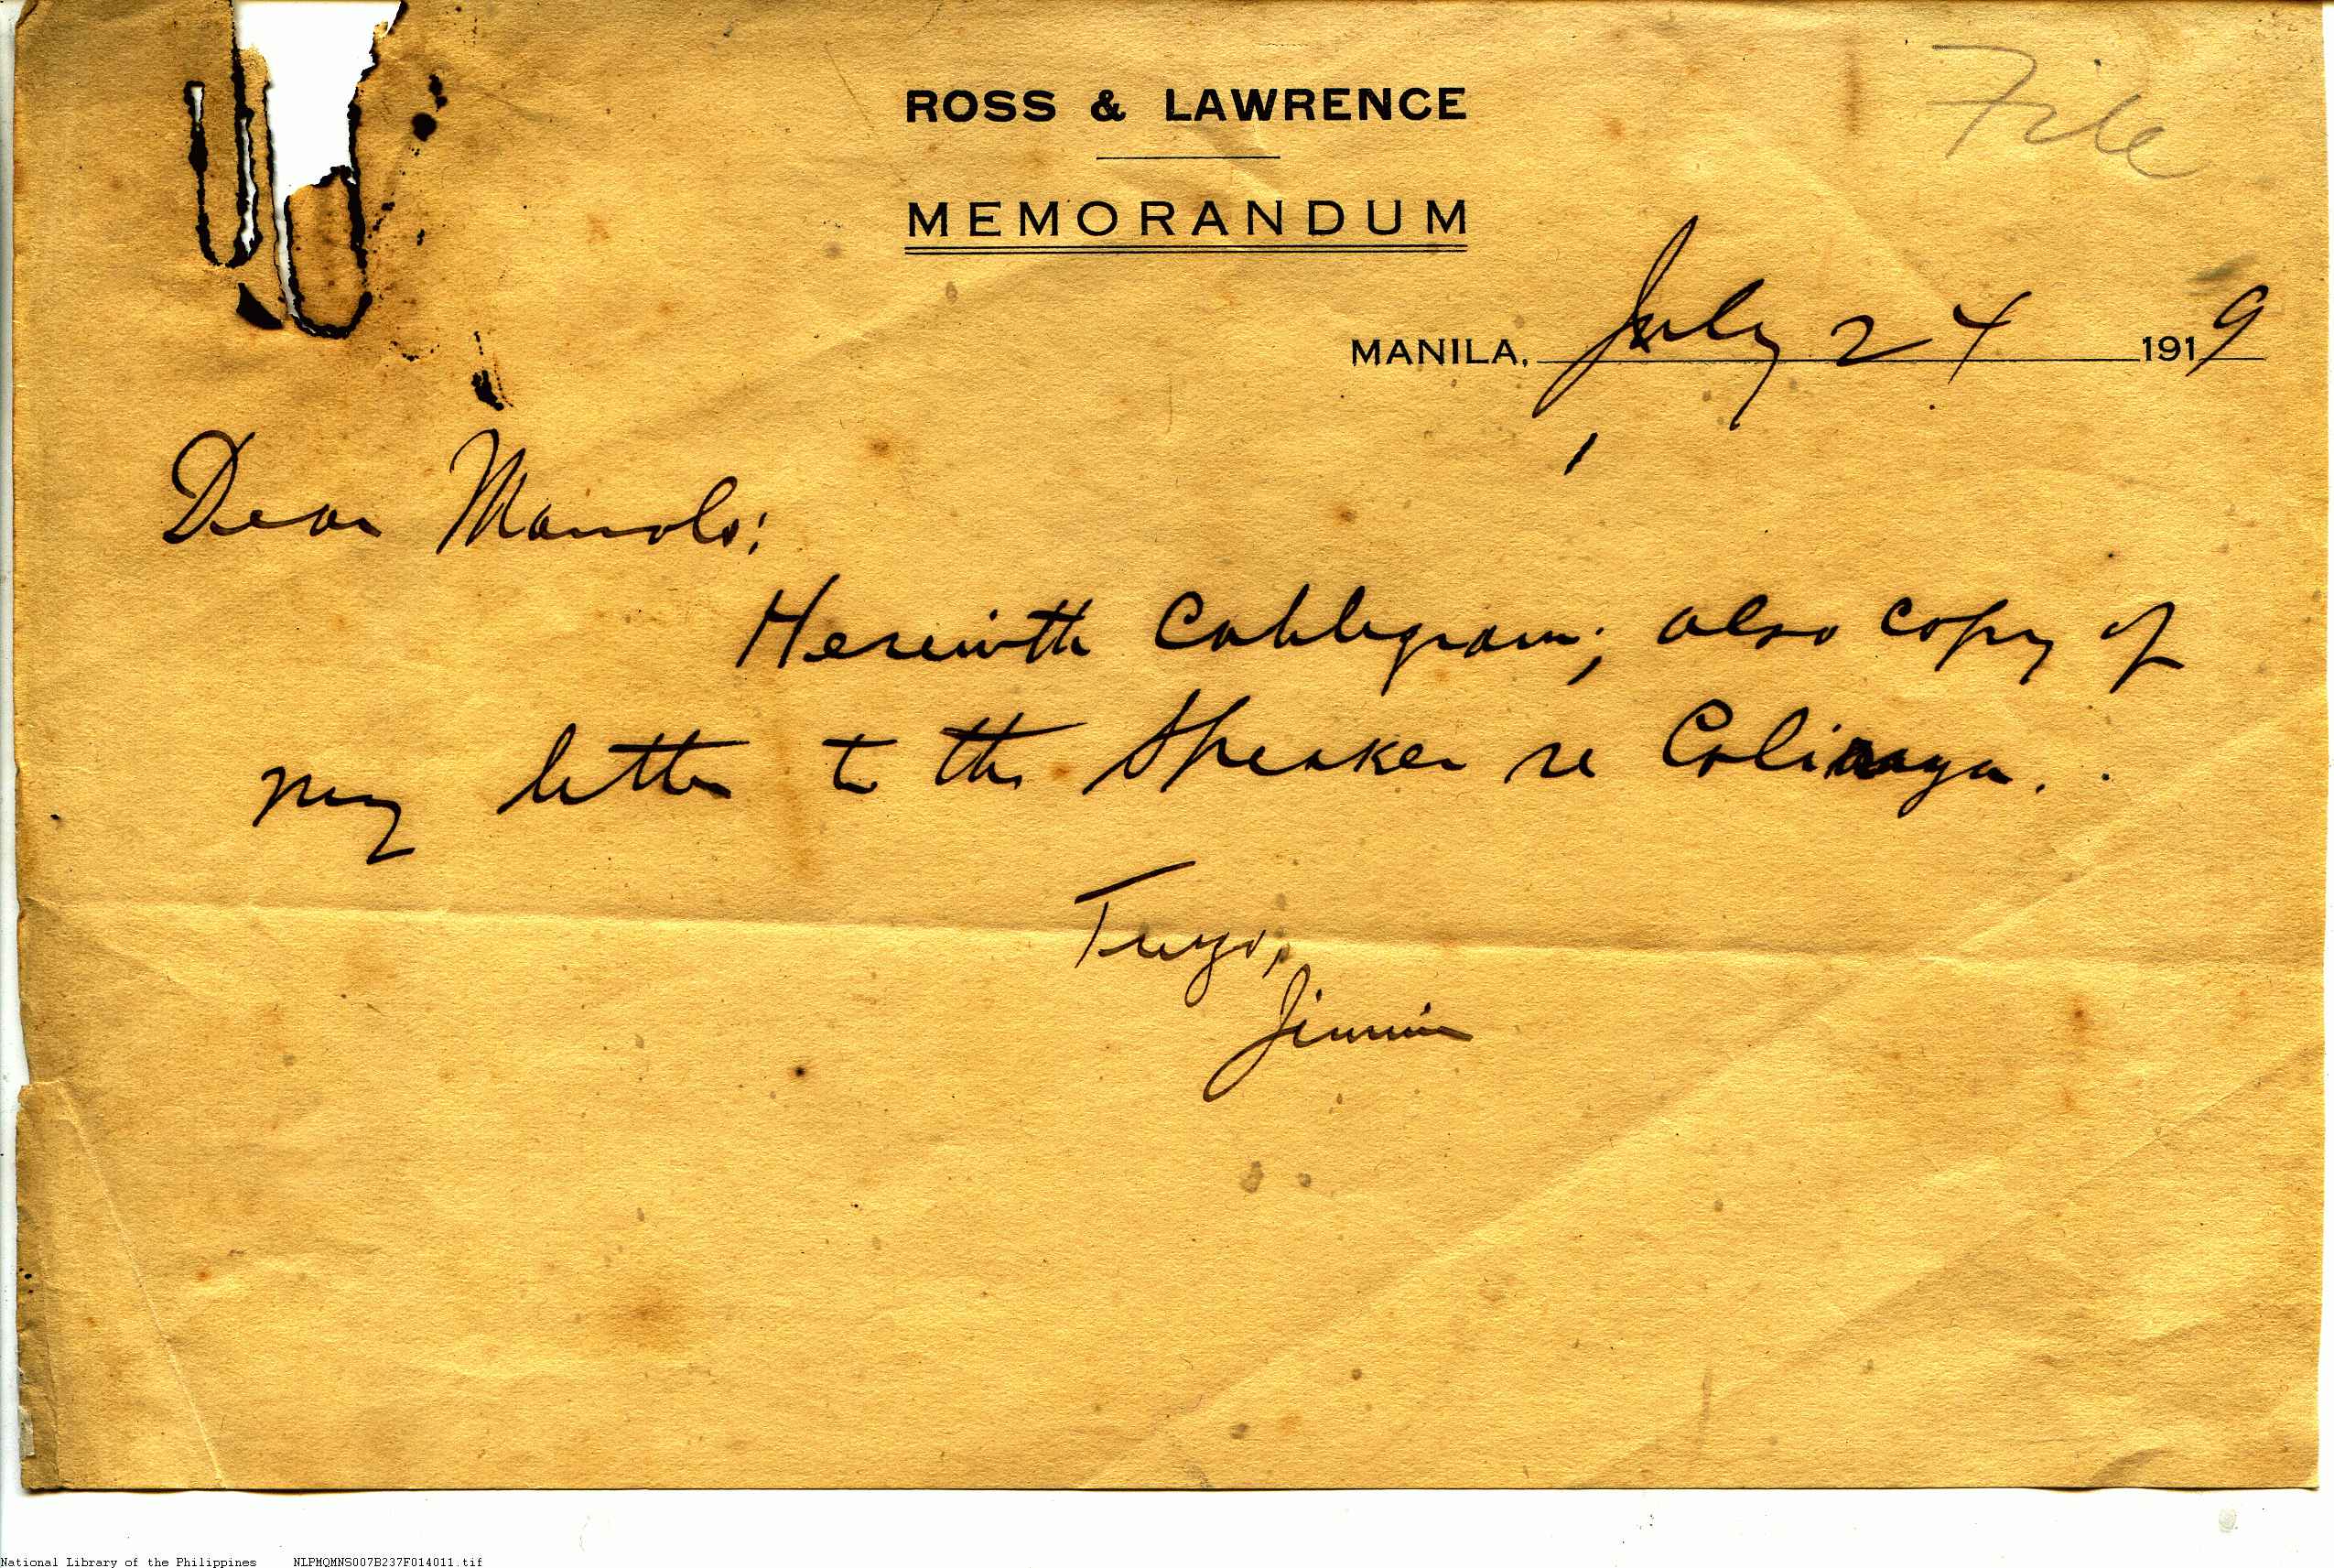 File
ROSS & LAWRENCE
MEMORANDUM
MANILA, July 24 1919
Dear Manolo:
Herewith Cablegram; also copy of
my letter to the Speaker re
Tuyo,
Jimmie
National Library of the Philippines NLPMQMNS007B237F014011.tif